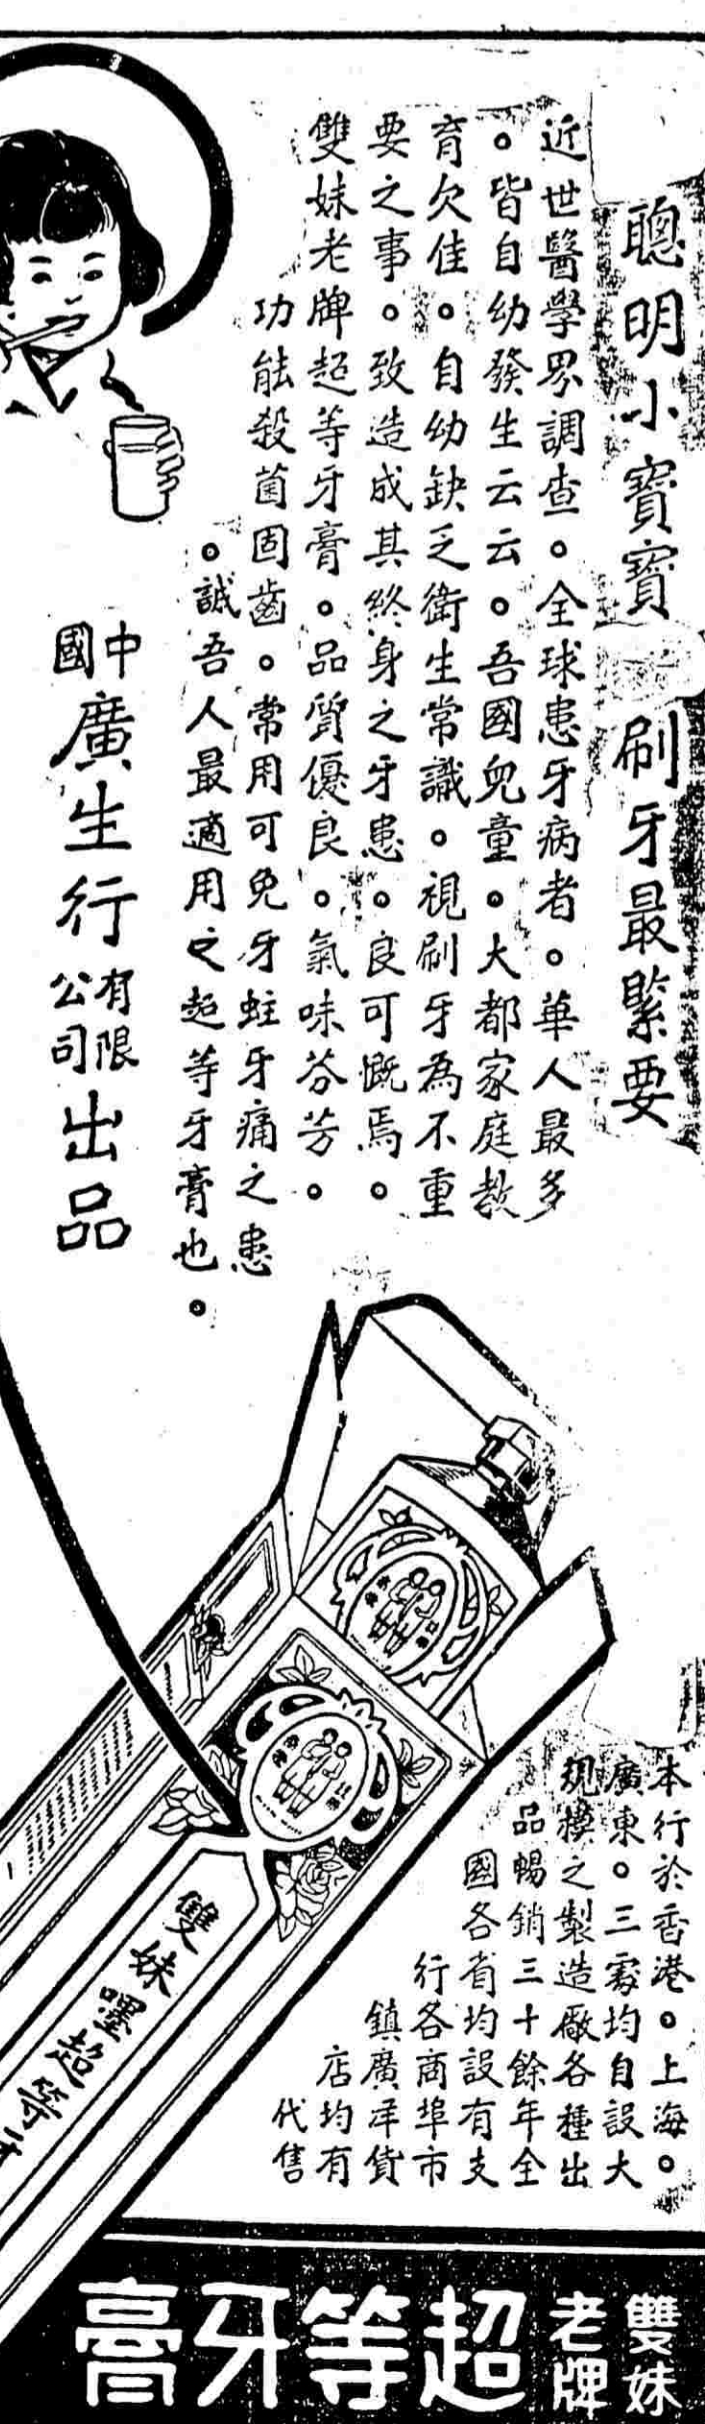 聰明小寶寶 刷牙最緊要
近世醫學界調查。全球患牙病者。華人最多
。皆自幼發生云云。吾國兒童。大都家庭教
育欠佳。自幼缺乏衛生常識。視刷牙為不重
要之事。致造成其終身之牙患。良可慨焉。
雙妹老牌超等牙膏。品質優良。氣味芬芳。
功能殺菌固齒。常用可免牙蛀牙痛之患
。誠吾人最適用之超等牙膏也。
中國廣生行有限公司出品
本行於香港。上海。
廣東。三處均自設大
規模之製造廠各種出
品暢銷三十餘年全
國各省均設有支
行各商埠市
鎮廣洋貨
店均有
代售
雙妹嚜超等牙
雙妹老牌超等牙膏